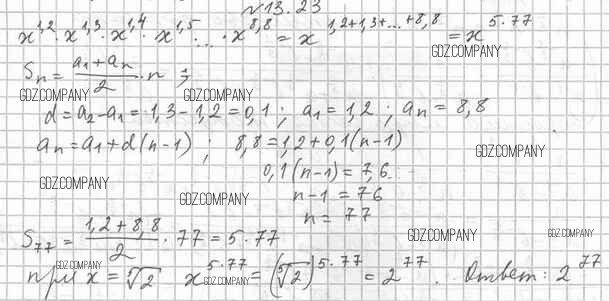 №13.23
x^1,2 · x^1,3 · x^1,4 · x^1,5 · ... · x^8,8 = x^1,2+1,3+...+8,8 = x^5·77
GDZ.COMPANY
Sn = (a₁+aₙ)/2 · n ;
GDZ.COMPANY GDZ.COMPANY
d = a₂-a₁ = 1,3-1,2 = 0,1 ; a₁ = 1,2 ; aₙ = 8,8
aₙ = a₁+d(n-1) ; 8,8 = 1,2+0,1(n-1)
GDZ.COMPANY
0,1(n-1) = 7,6
GDZ.COMPANY GDZ.COMPANY
n-1 = 76
n = 77
S₇₇ = (1,2+8,8)/2 · 77 = 5·77
GDZ.COMPANY GDZ.COMPANY
при x = ⁵√2 x^5·77 = (⁵√2)^5·77 = 2^77. Ответ: 2^77
GDZ.COMPANY GDZ.COMPANY